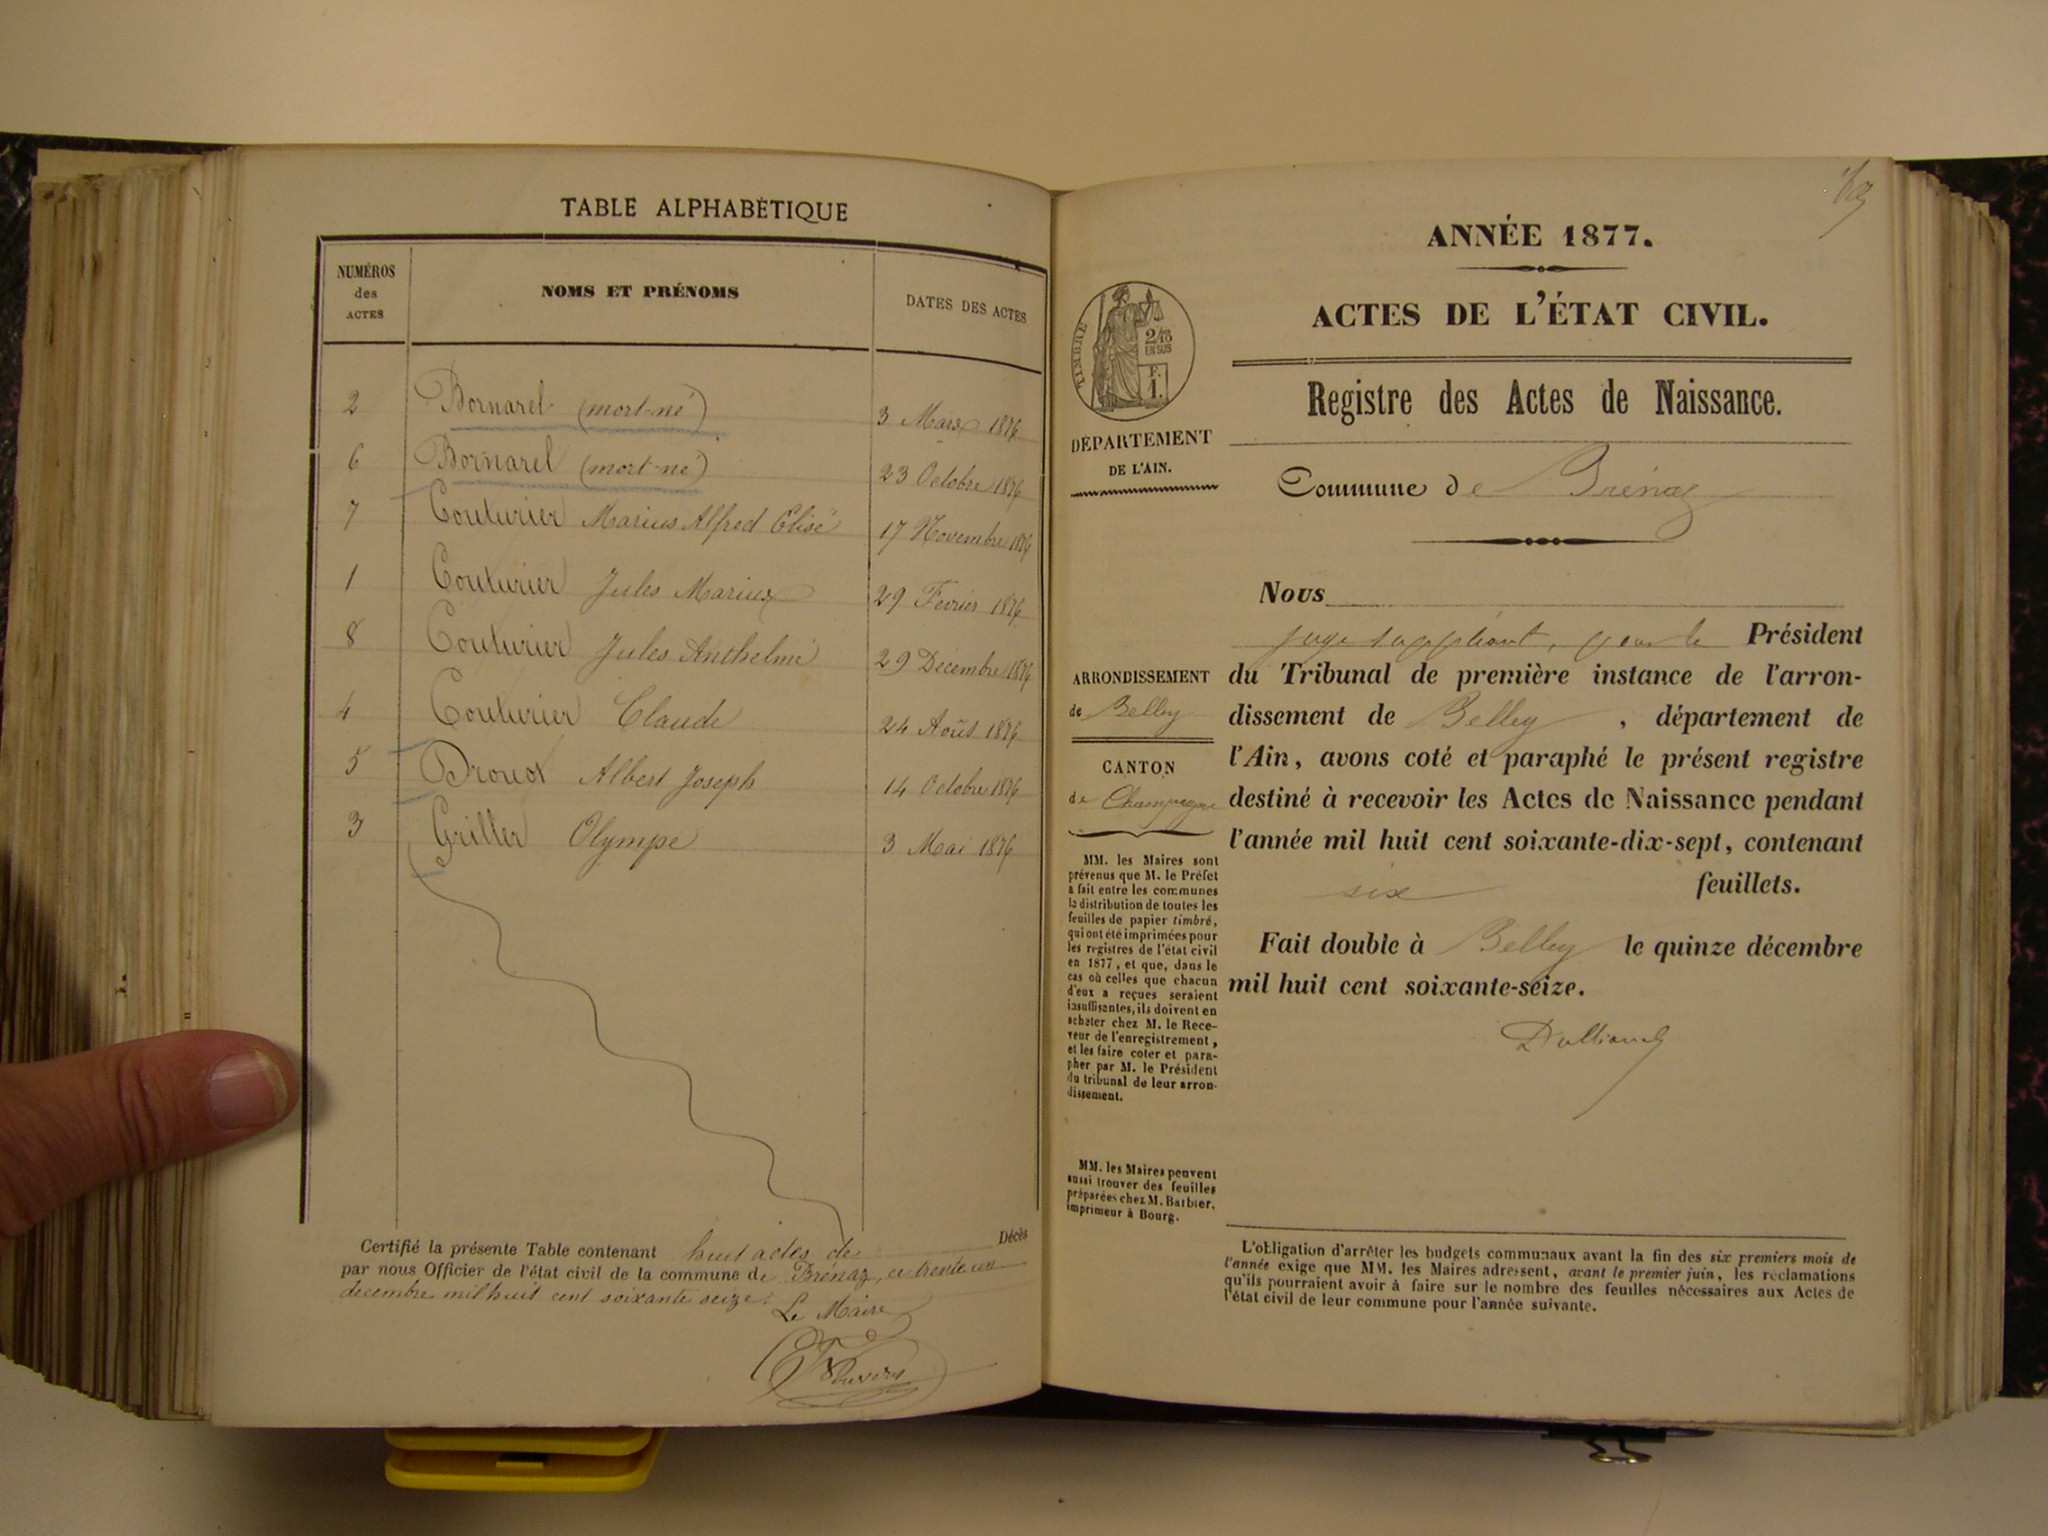 TABLE ALPHABÉTIQUE
NUMÉROS des ACTES NOMS ET PRÉNOMS DATES DES ACTES
2 Bornarel (mort-né) 3 Mars 1876
6 Bornarel (mort-né) 23 Octobre 1876
7 Couturier Marius Alfred Elisé 17 Novembre 1876
1 Couturier Jules Marius 29 Fevrier 1876
8 Couturier Jules Anthelme 29 Décembre 1876
4 Couturier Claude 24 Août 1876
5 Drouot Albert Joseph 14 Octobre 1876
3 Griller Olympe 3 Mai 1876
Certifié la présente Table contenant huit actes de Décès
par nous Officier de l'état civil de la commune de Brénaz, ce trente un
décembre mil huit cent soixante seize.
Le Maire
ANNÉE 1877.
ACTES DE L'ÉTAT CIVIL.
Registre des Actes de Naissance.
TIMBRE
2/10
EN SUS
F.
1.
DÉPARTEMENT
DE L'AIN.
Commune de Brénaz
Nous
juge suppléant, pour le Président
du Tribunal de première instance de l'arron-
dissement de Belley, département de
l'Ain, avons coté et paraphé le présent registre
destiné à recevoir les Actes de Naissance pendant
l'année mil huit cent soixante-dix-sept, contenant
six feuillets.
Fait double à Belley le quinze décembre
mil huit cent soixante-seize.
ARRONDISSEMENT
de Belley
CANTON
de Champagne
MM. les Maires sont
prévenus que M. le Préfet
a fait entre les communes
la distribution de toutes les
feuilles de papier timbré,
qui ont été imprimées pour
les registres de l'état civil
en 1877, et que, dans le
cas où celles que chacun
d'eux a reçues seraient
insuffisantes, ils doivent en
acheter chez M. le Rece-
veur de l'enregistrement,
et les faire coter et para-
pher par M. le Président
du tribunal de leur arron-
dissement.
MM. les Maires peuvent
aussi trouver des feuilles
préparées chez M. Barbier,
imprimeur à Bourg.
L'obligation d'arrêter les budgets communaux avant la fin des six premiers mois de
l'année exige que MM. les Maires adressent, avant le premier juin, les réclamations
qu'ils pourraient avoir à faire sur le nombre des feuilles nécessaires aux Actes de
l'état civil de leur commune pour l'année suivante.